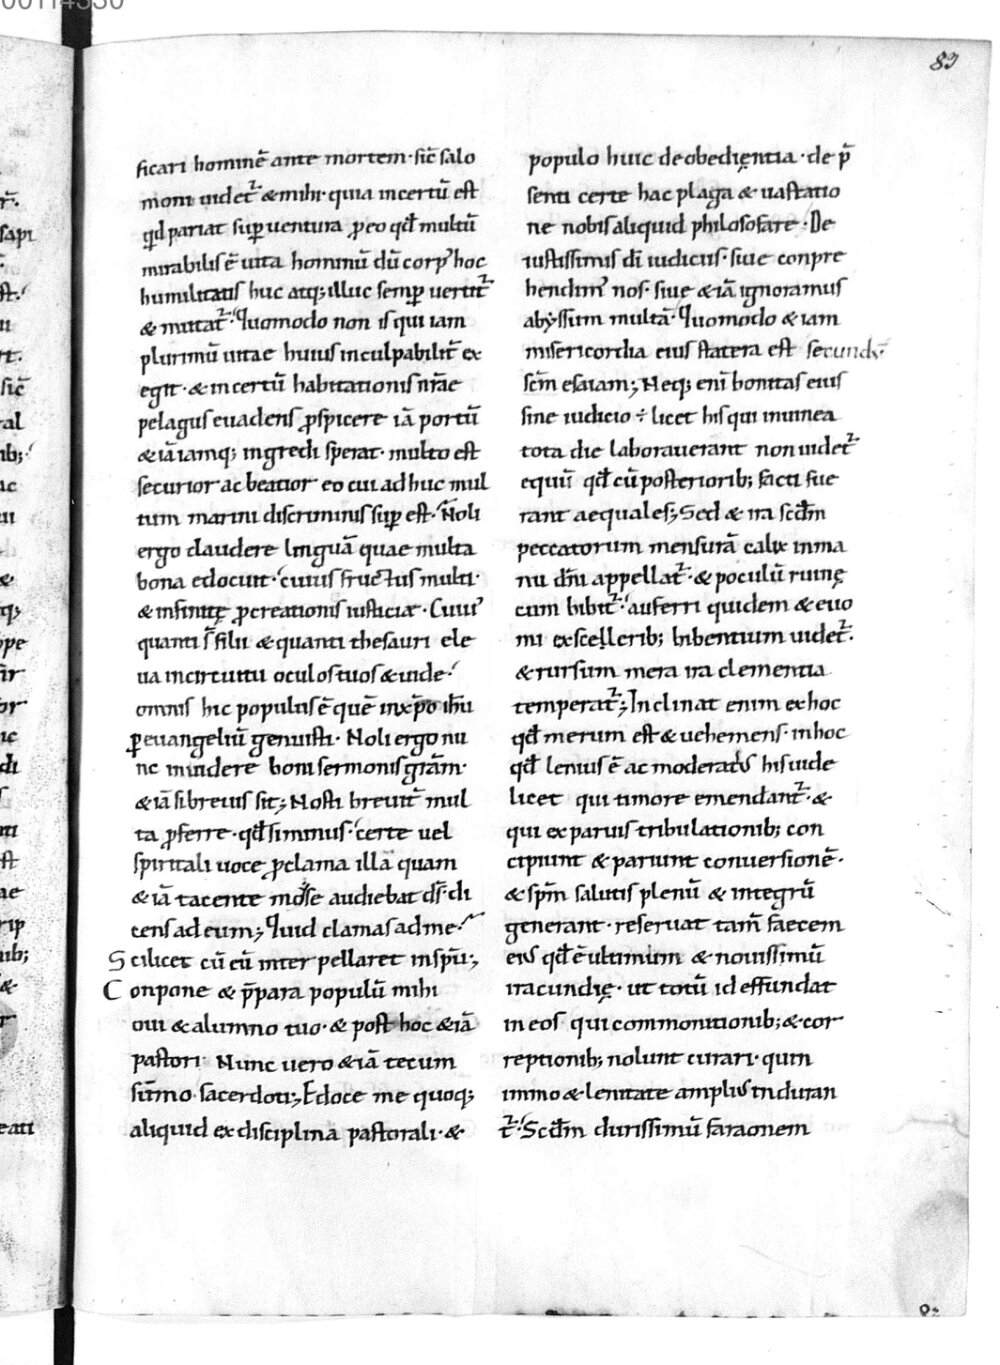 83
ficari hominē ante mortem· sic̄ salo
moni uidet᷑ & mihi· quia incertū est
qd pariat suꝑuentura ꝓ eo qđ multū
mirabilis ē uita hominū dū corp᾽ hoc
humilitatis huc atq; illuc semꝑ uertit᷑
& mutat᷑· Quomodo non is qui iam
plurimū uitae huius inculpabilit̄ ex
egit· & incertū habitationis nr̄ae
pelagus euadens ꝓspicere iā portū
& iā iamq; ingredi sperat· multo est
securior ac beatior eo cui adhuc mul
tum marini discriminis suꝑ est· Noli
ergo claudere linguā quae multa
bona edocuit· cuius fructus multi·
& infinitę ꝓcreationis iusticiæ· Cuius
quanti s̄ filii & quanti thesauri ele
ua in circuitu oculos tuos & uide·
omnis hic populus ē quē in xp̄o ih̄u
ꝑ euangeliū genuisti· Noli ergo nu
nc inuidere boni sermonis grām·
& iā si breuis sit; Nosti breuit̄ mul
ta ꝓferre· qđ simmus· certe uel
spiritali uoce ꝓclama illā quam
& iā tacente mose audiebat ds̄ di
cens ad eum; Quid clamas ad me·
Scilicet cū eū inter pellaret in sp̄u;
Conpone & p̄para populū mihi
oui & alumno tuo· & post hoc & iā
pastori· Nunc uero & iā tecum
sum̄o sacerdoti; Edoce me quoq;
aliquid ex disciplina pastorali· &
populo huic de obedientia· de p̄
senti certe hac plaga & uastatio
ne nobis aliquid philosofare· De
iustissimis dī iudiciis· siue conpre
hendim᾽ nos· siue & iā ignoramus
abyssum multā· Quomodo & iam
misericordia eius statera est secundū
sc̄m esaiam; Neq; enī bonitas eius
sine iudicio ÷ licet his qui in uinea
tota die laborauerant non uidet᷑
equū qđ cū posteriorib; facti fue
rant aequales; Sed & ira scđm
peccatorum mensurā calix in ma
nu dn̄i appellat᷑· & poculū ruinę
cum bibit᷑· auferri quidem & euo
mi ex scelerib; bibentium uidet᷑·
& rursum mera ira clementia
temperat᷑; Inclinat enim ex hoc
qđ merum est & uehemens· in hoc
qđ lenius ē ac moderatius his uide
licet qui timore emendant᷑· &
qui ex paruis tribulationib; con
cipiunt & pariunt conuersionē·
& sp̄m salutis plenū & integrū
generant· reseruat tam̄ faecem
eius qđ ē ultimum & nouissimū
iracundię· ut totū id effundat
in eos qui commonitionib; & cor
reptionib; nolunt curari· quin
immo & lenitate amplius induran
t᷑· Scđm durissimū faraonem